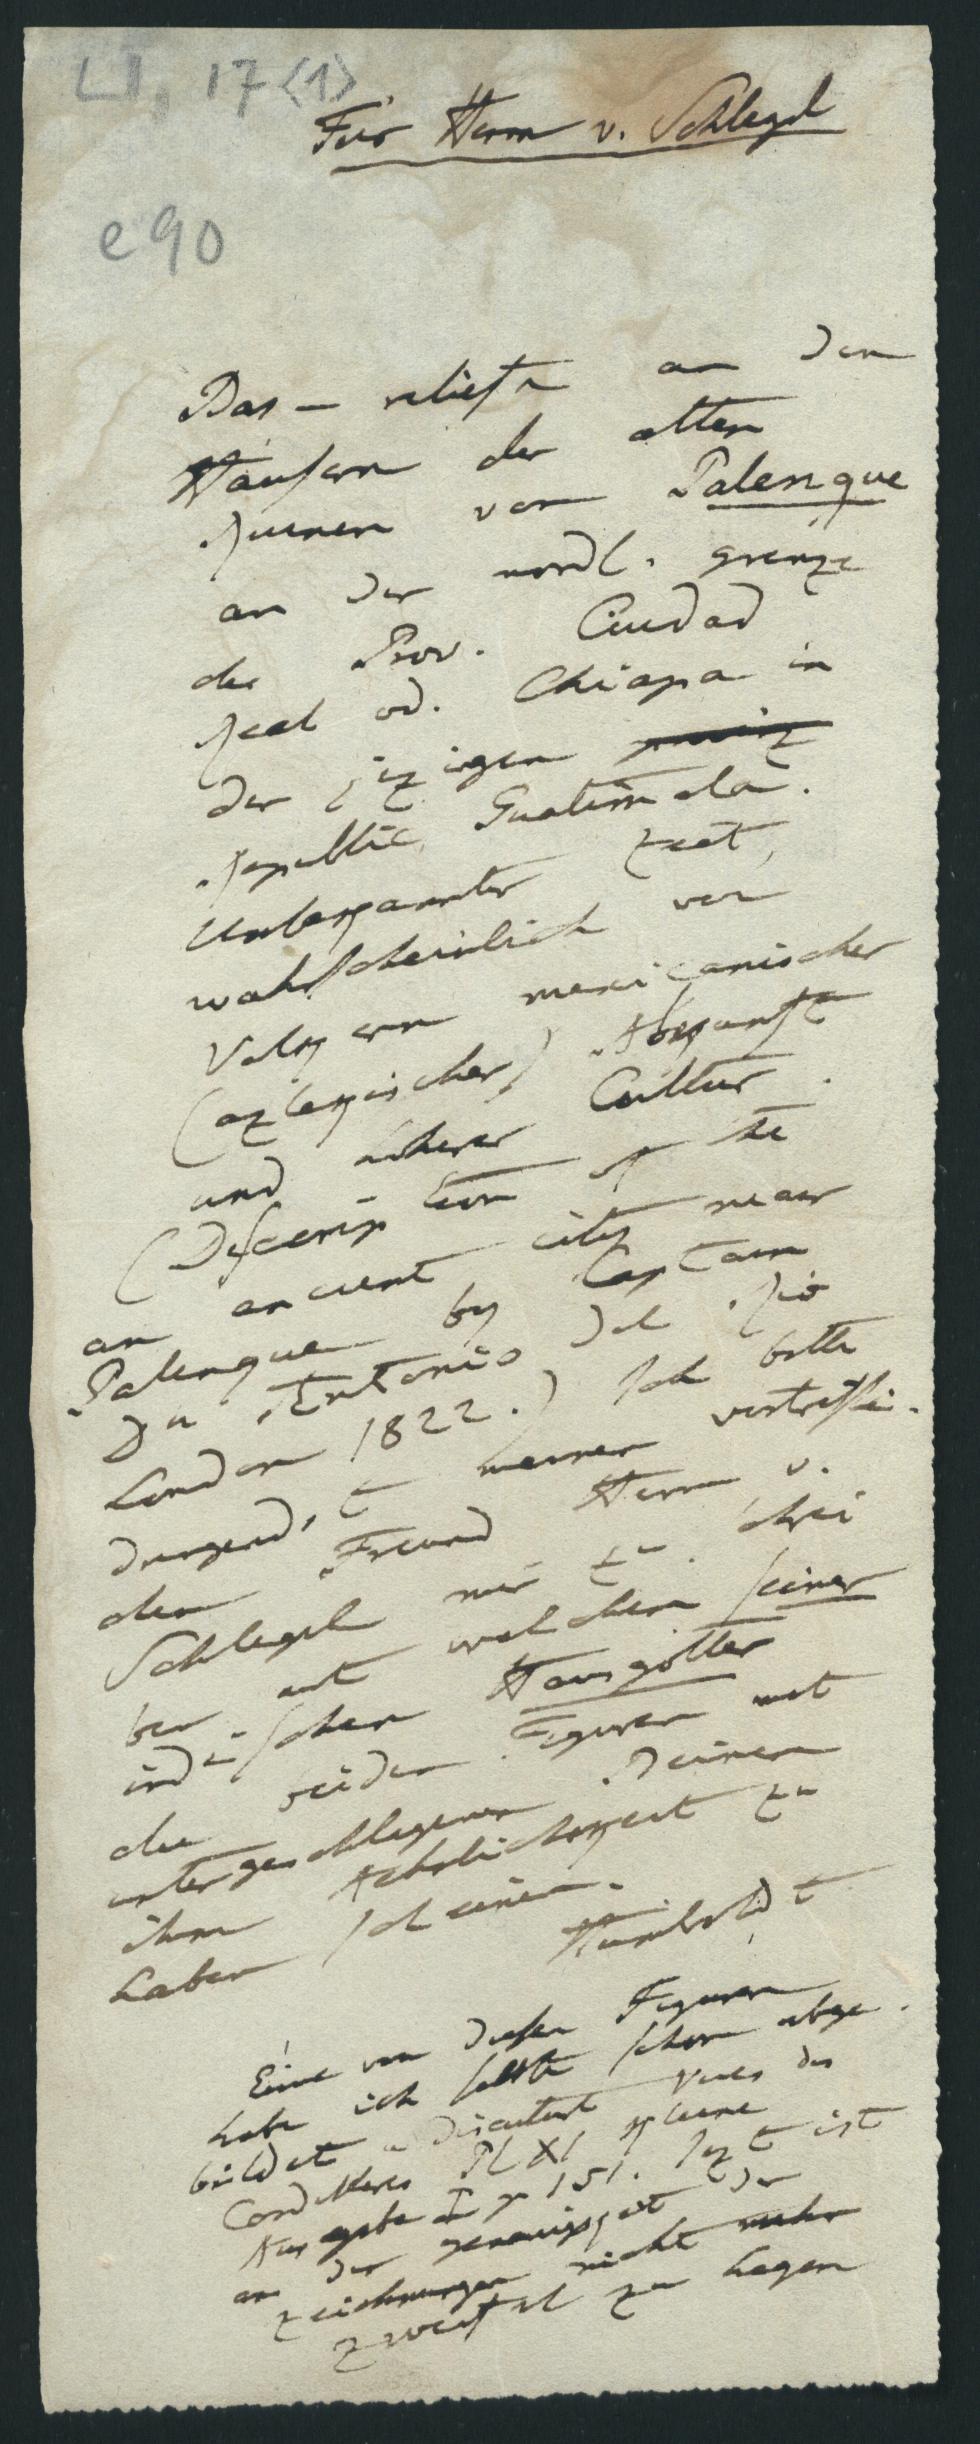 LI, 17 <1>
Für Herrn v. Schlegel
e90
Bas-reliefs an den
Häusern der alten
Ruinen von Palenque
an der nördl. grenze
der Prov. Ciudad
Real od. Chiapa in
der jezigen
Republic Guatimala.
Unbekannter Zeit,
wahrscheinlich von
Völkern mexicanischer
(aztekischer) Abkunft
und höherer Cultur.
(Description of the
an ancient city near
Palenque by Captain
Dn Antonio del Rio
London 1822.) Ich bitte
dringendst meinen vortrefli-
chen Freund Herrn v.
Schlegel mir zu schrei
ben mit welchen seiner
indischen Hausgötter
die beiden Figuren mit
untergeschlagenen Beinen
ihm Aehnlichkeit zu
haben scheinen.
Humboldt
Eine von diesen Figuren
habe ich selbst schon abge-
bildet u discutirt Vues des
Cordilleres Pl XI kleine
Ausgabe I p 151. Jezt ist
an der genauigkeit der
Zeichnungen nicht mehr
Zweifel zu hegen